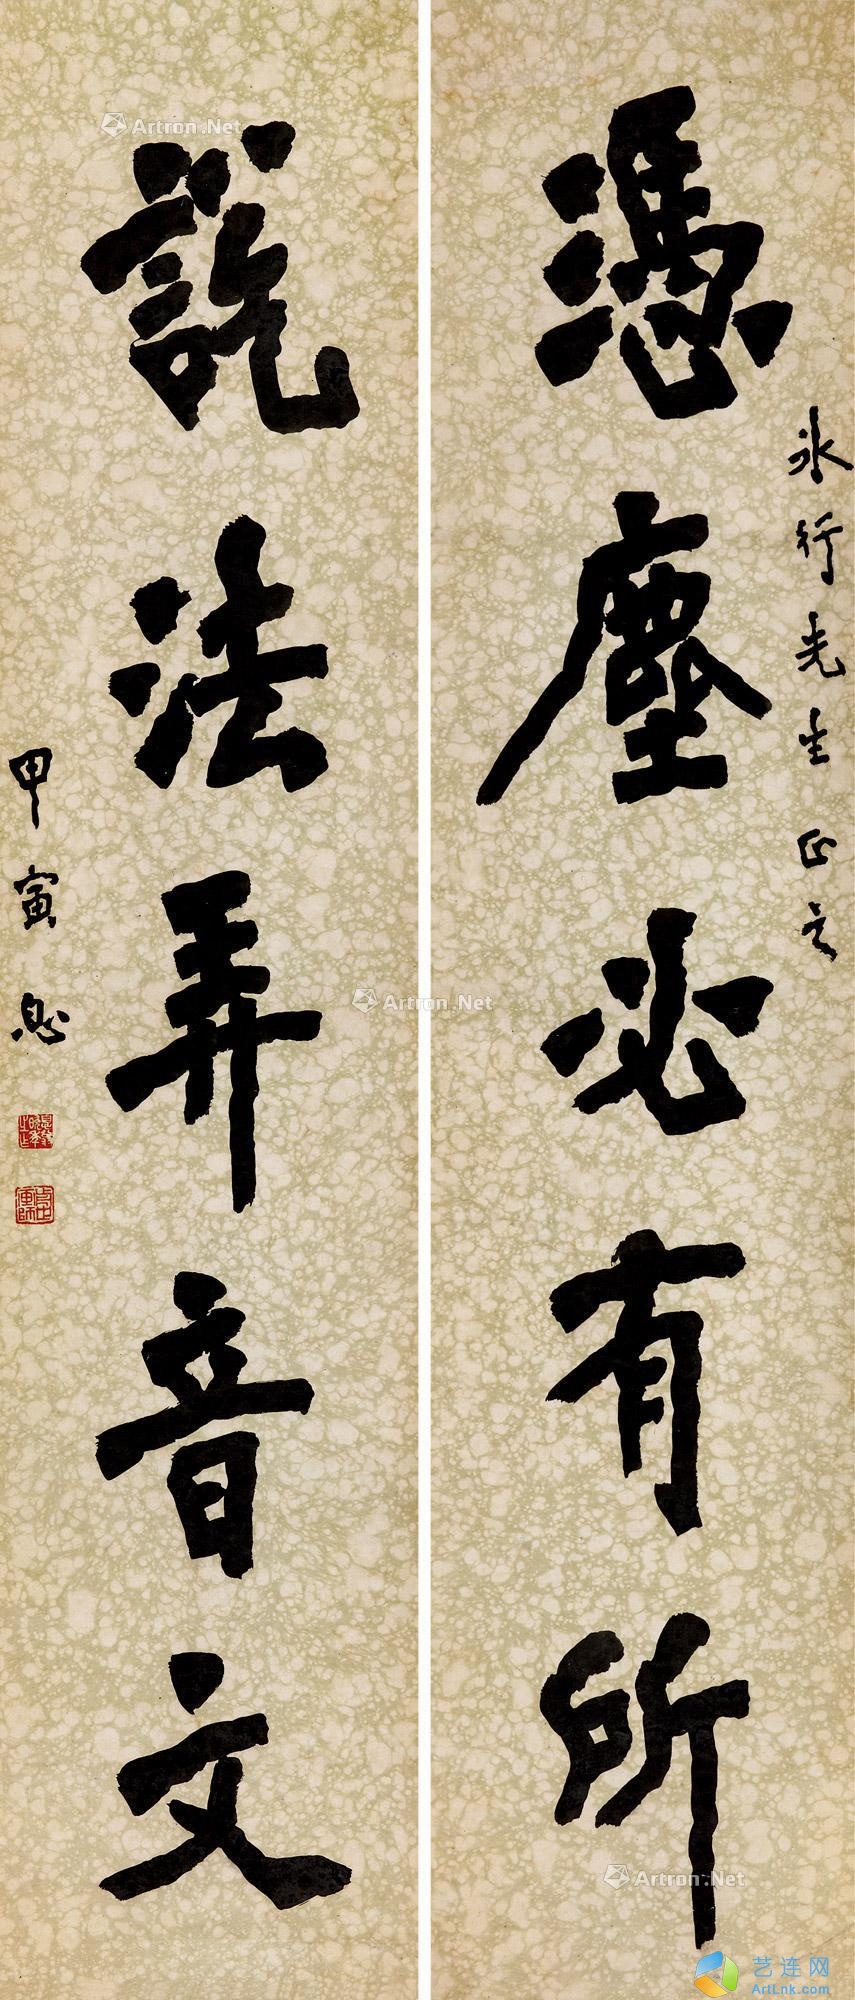 憑塵必有所
冰行先生正之
説法弄音文
甲寅
Artron.Net
Artron.Net
Artron.Net
艺连网
ArtLnk.com